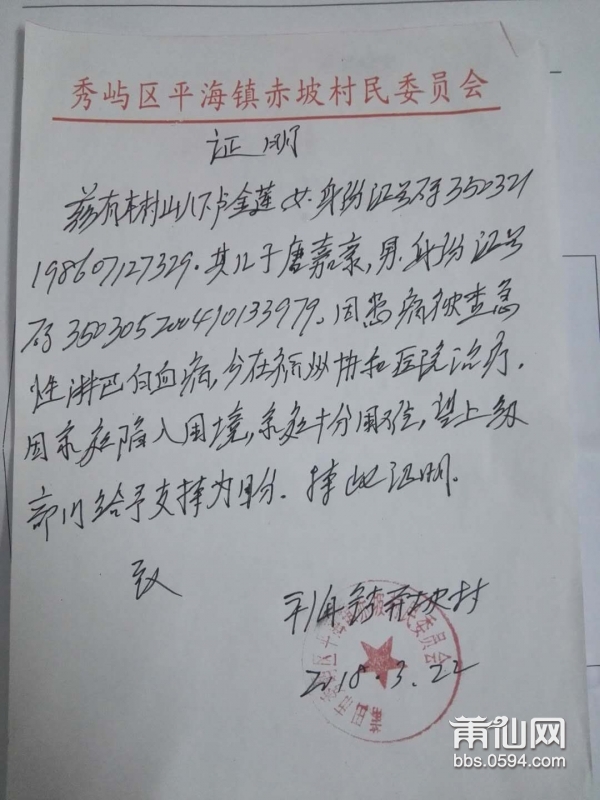 秀屿区平海镇赤坡村民委员会
证明
兹有本村山下卢金莲 女.身份证号码350321
198607127329.其儿子唐嘉豪,男.身份证号
码350305200410133979.因患病被查急
性淋巴白血病,今在福州协和医院治疗.
因家庭陷入困境,家庭十分困难,望上级
部门给予支持为盼.特此证明.
致
平海镇赤坡村
2018.3.22
莆田市秀屿区平海镇赤坡村民委员会
莆仙网
bbs.0594.com